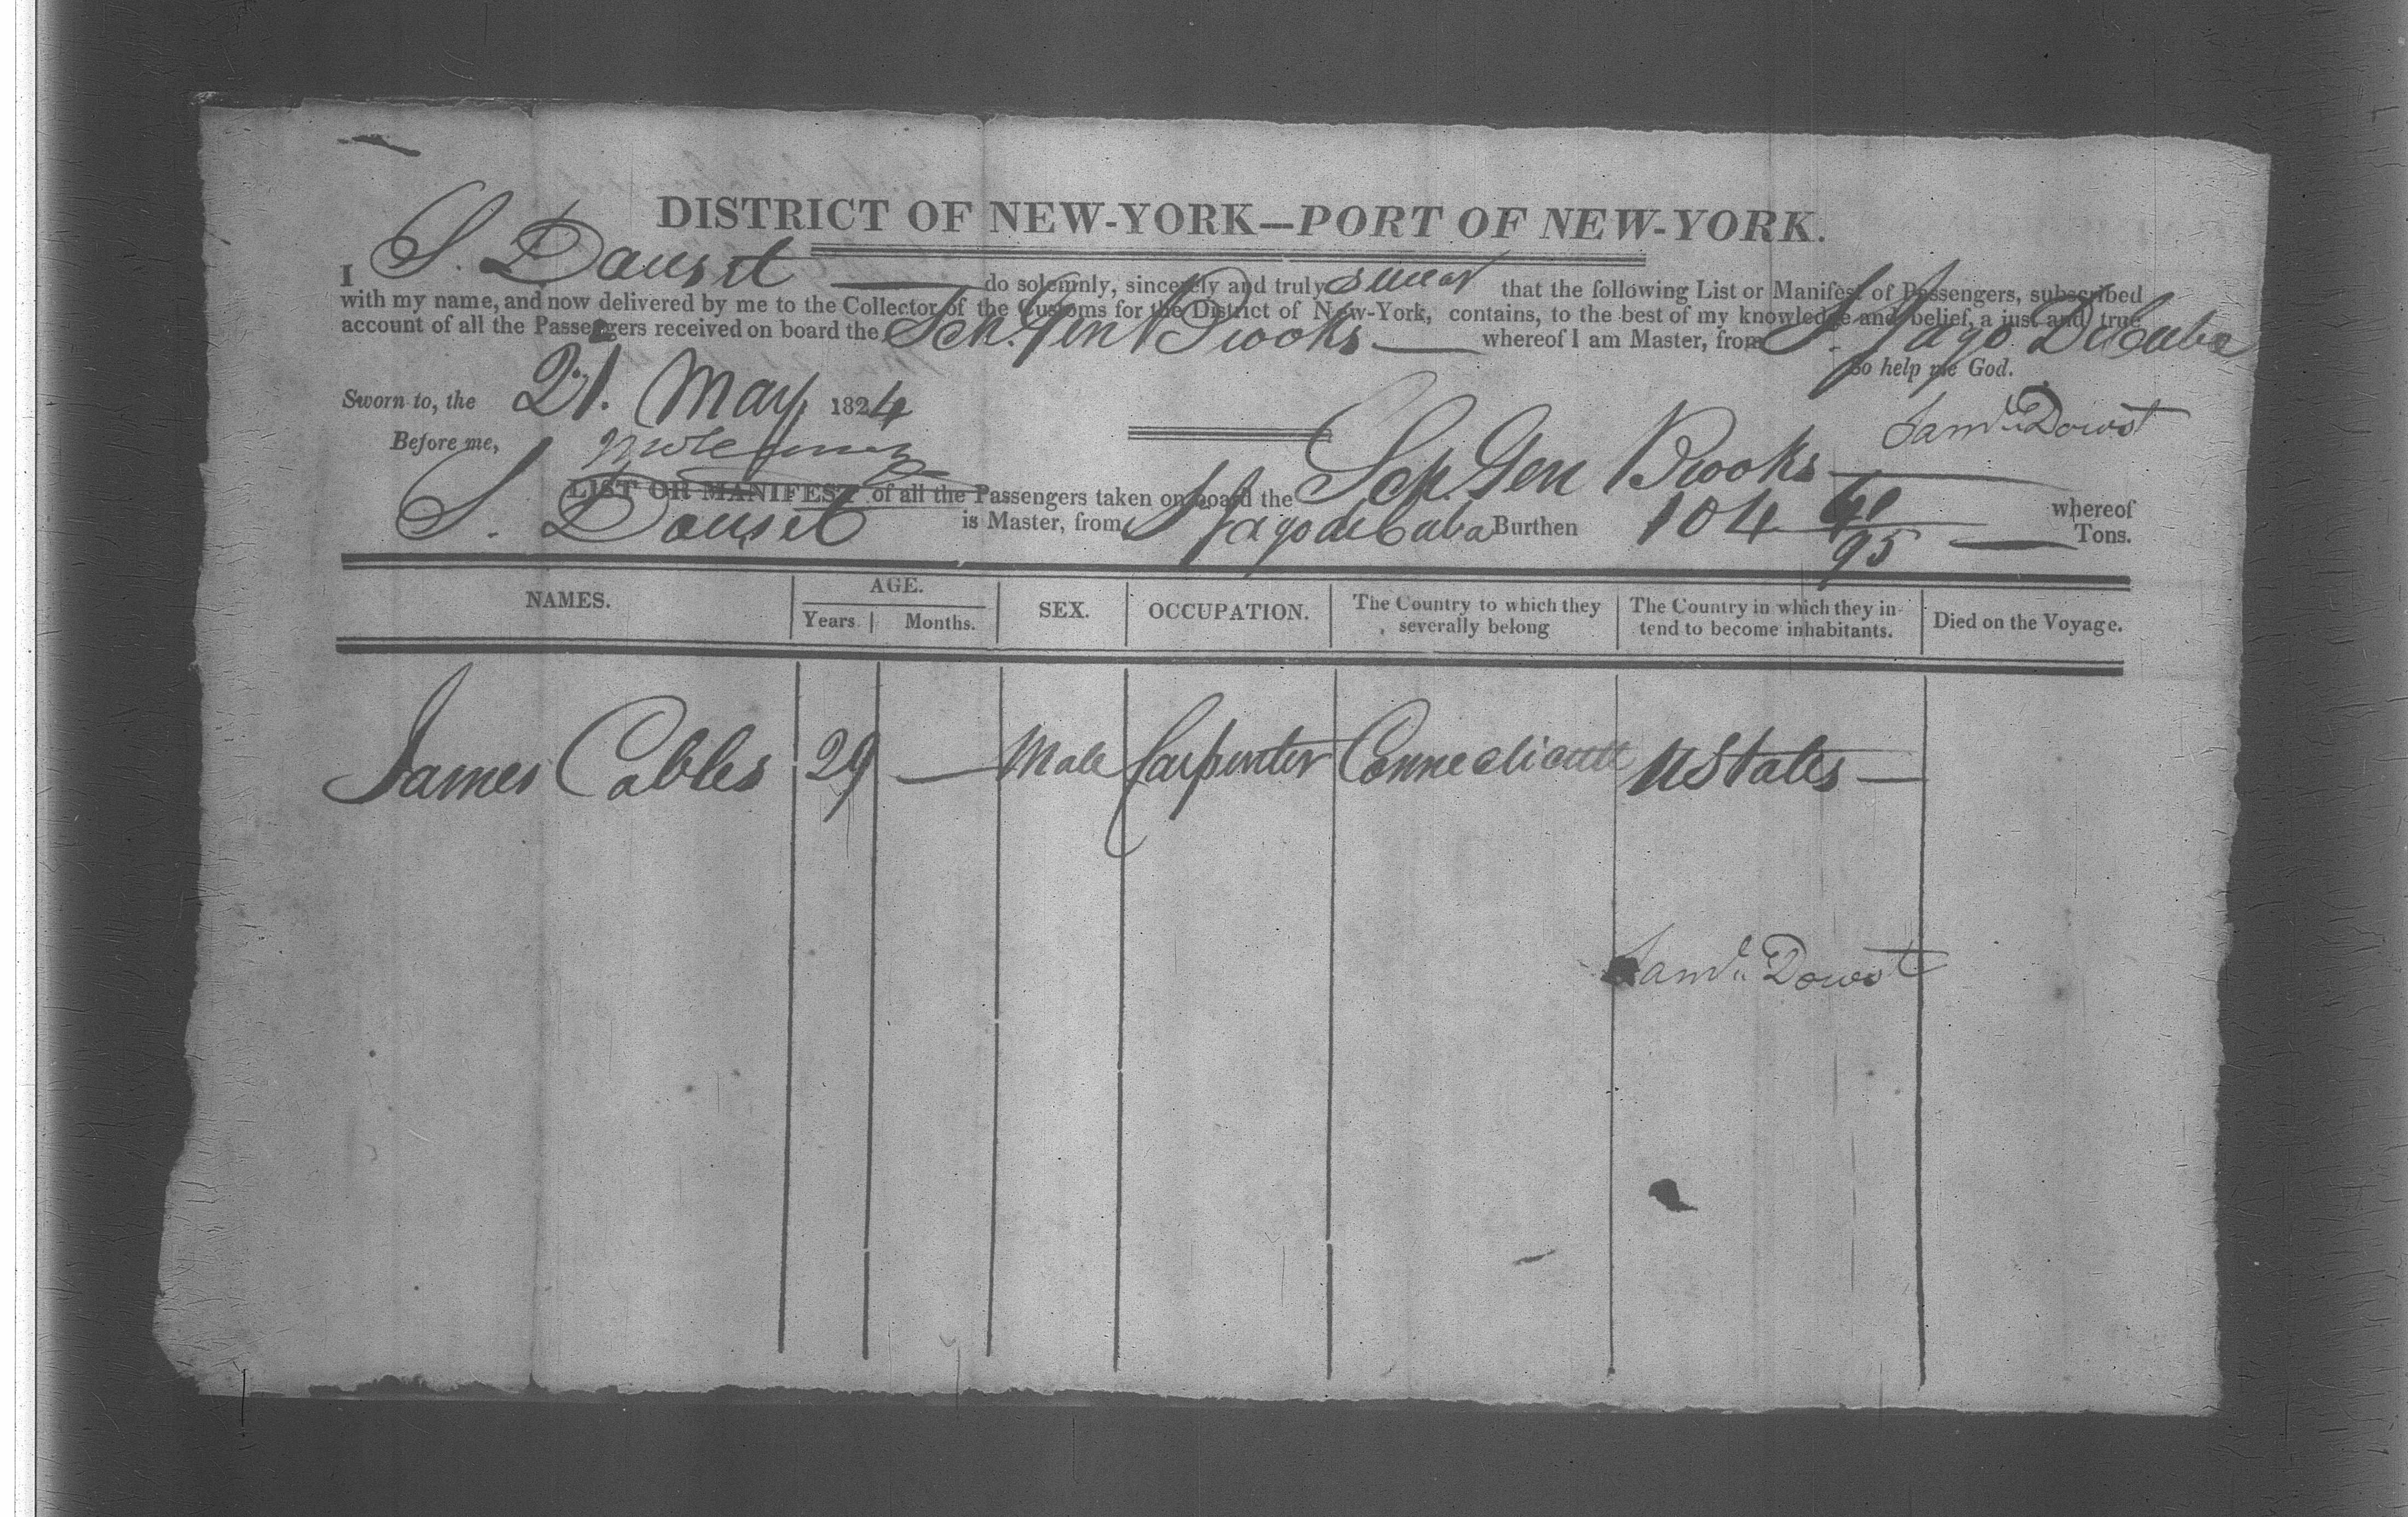 DISTRICT OF NEW-YORK—PORT OF NEW-YORK.
I S. Dauset do solemnly, sincerely and truly swear that the following List or Manifest of Passengers, subscribed
with my name, and now delivered by me to the Collector of the Customs for the District of New-York, contains, to the best of my knowledge and belief, a just and true
account of all the Passengers received on board the Sch. Gen Brooks whereof I am Master, from St Jago De Cuba
So help me God.
Sworn to, the 21. May 1824
Saml Dowst
Before me,
LIST OR MANIFEST of all the Passengers taken on board the Sch. Gen Brooks whereof
S. Dauset is Master, from St Jago de Cuba Burthen 104 /95 Tons.
NAMES. AGE. SEX. OCCUPATION. The Country to which they severally belong The Country in which they in- tend to become inhabitants. Died on the Voyage.
Years Months.
James Cables 29 — Male Carpenter Connecticutt U States —
Saml Dowst